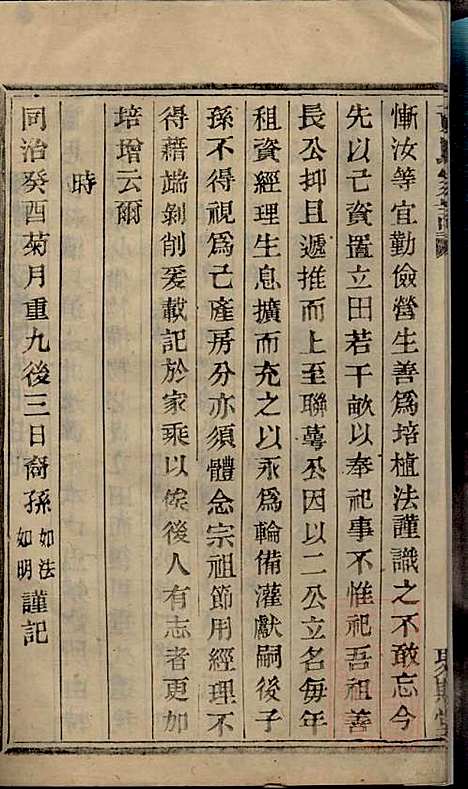 慚汝等宜勤儉營生善爲培植法謹識之不敢忘今
先以己資置立田若干畝以奉祀事不惟祀吾祖善
長公抑且遞推而上至聯蕚公因以二公立名每年
租資經理生息擴而充之以永爲輪備灌獻嗣後子
孫不得視爲己產房分亦須體念宗祖節用經理不
得藉端剝削爰載記於家乘以俟後人有志者更加
培增云爾
時
同治癸酉菊月重九後三日裔孫如法如明謹記